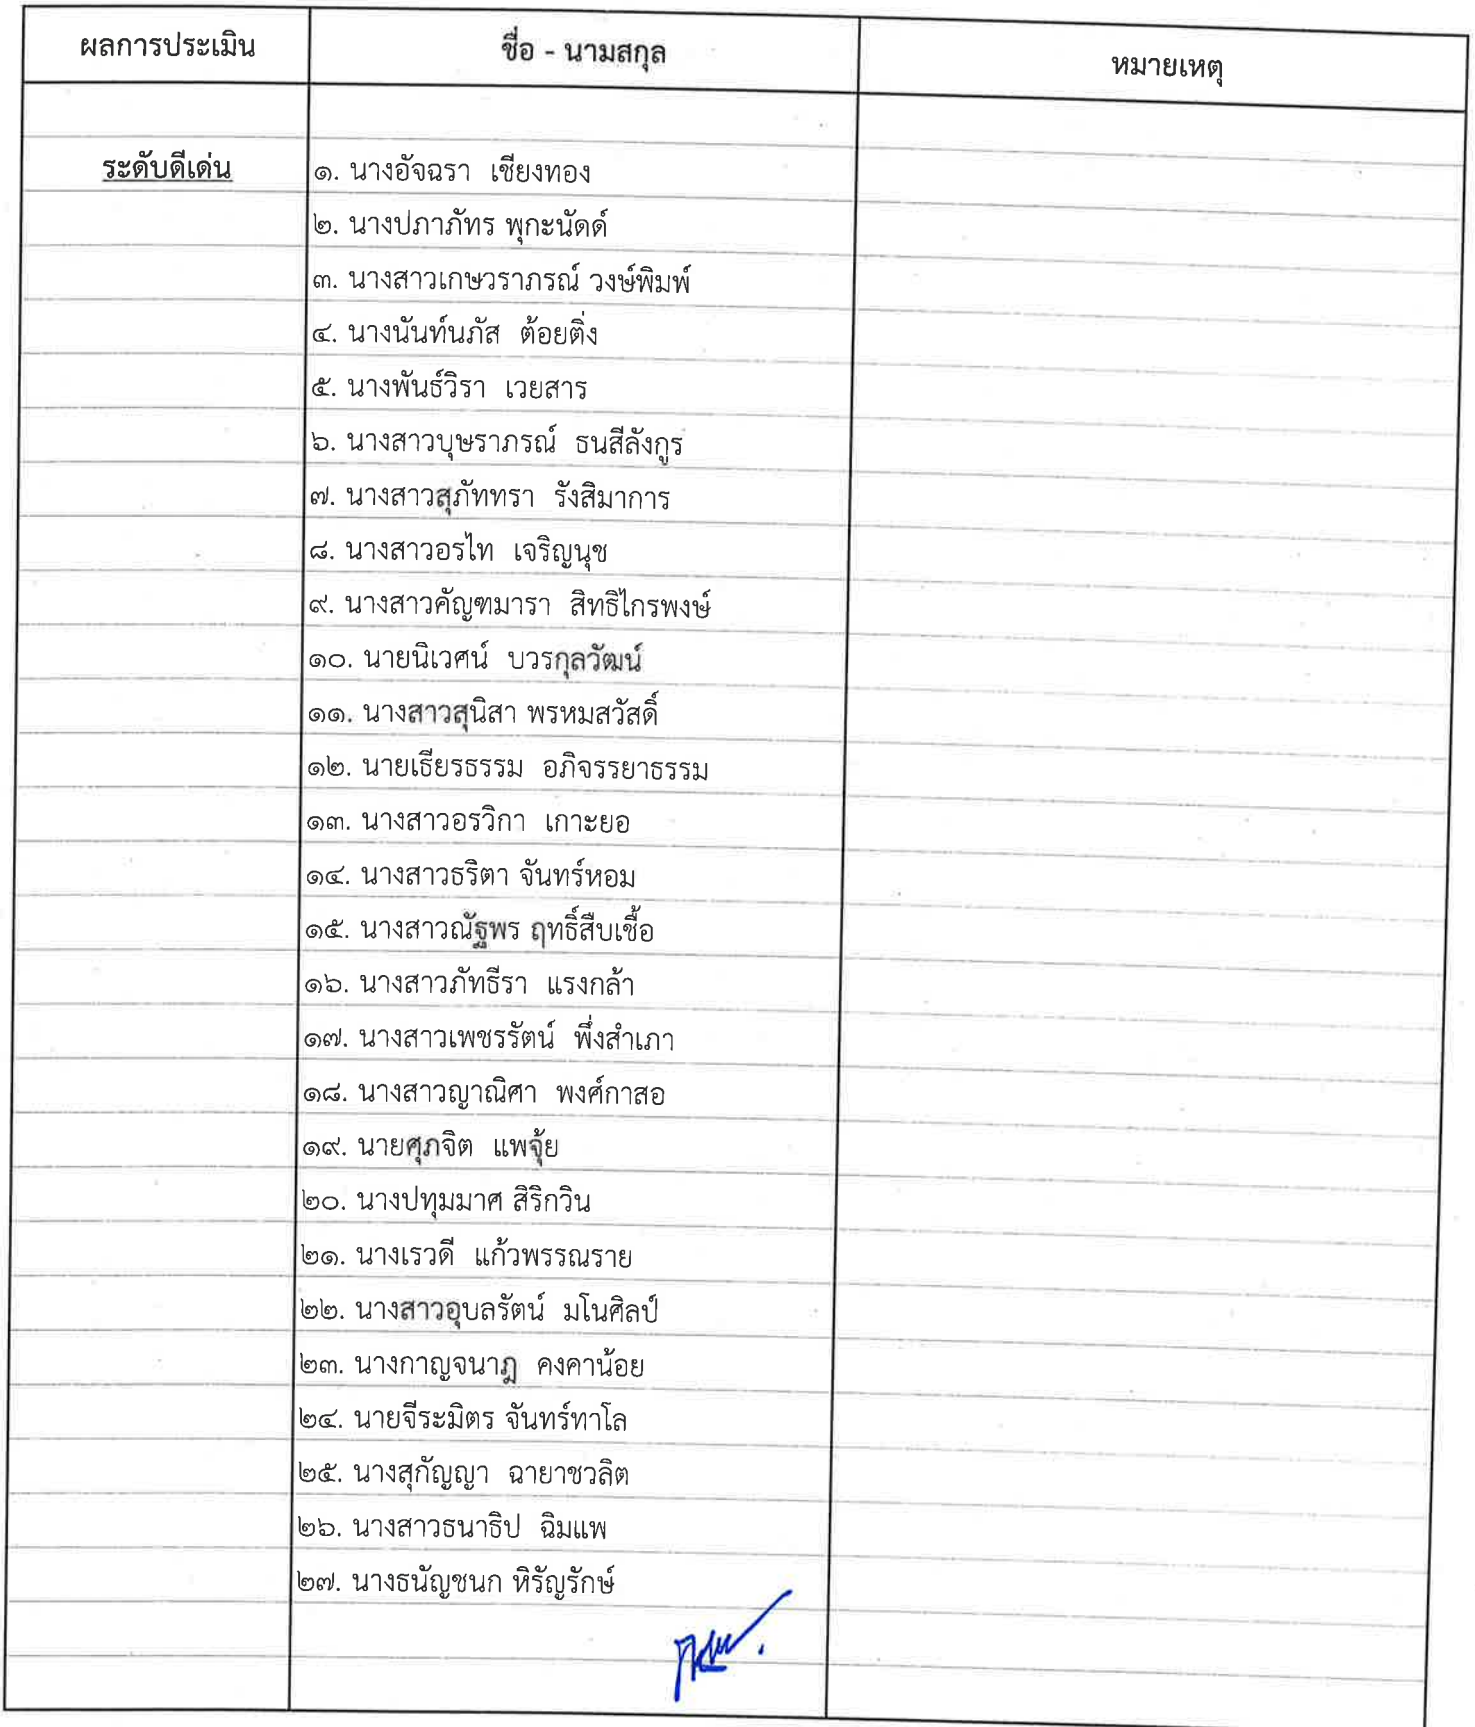 ผลการประเมิน ชื่อ - นามสกุล หมายเหตุ
ระดับดีเด่น ๑. นางอัจฉรา เชียงทอง
๒. นางปภาภัทร พุกะนัดด์
๓. นางสาวเกษวราภรณ์ วงษ์พิมพ์
๔. นางนันท์นภัส ต้อยติ่ง
๕. นางพันธ์วิรา เวยสาร
๖. นางสาวบุษราภรณ์ ธนสีลังกูร
๗. นางสาวสุภัททรา รังสิมาการ
๘. นางสาวอรไท เจริญนุช
๙. นางสาวคัญฑมารา สิทธิไกรพงษ์
๑๐. นายนิเวศน์ บวรกุลวัฒน์
๑๑. นางสาวสุนิสา พรหมสวัสดิ์
๑๒. นายเธียรธรรม อภิจรรยาธรรม
๑๓. นางสาวอรวิกา เกาะยอ
๑๔. นางสาวธริตา จันทร์หอม
๑๕. นางสาวณัฐพร ฤทธิ์สืบเชื้อ
๑๖. นางสาวภัทธีรา แรงกล้า
๑๗. นางสาวเพชรรัตน์ พึ่งสำเภา
๑๘. นางสาวญาณิศา พงศ์กาสอ
๑๙. นายศุภจิต แพจุ้ย
๒๐. นางปทุมมาศ สิริกวิน
๒๑. นางเรวดี แก้วพรรณราย
๒๒. นางสาวอุบลรัตน์ มโนศิลป์
๒๓. นางกาญจนาฎ คงคาน้อย
๒๔. นายจีระมิตร จันทร์ทาโล
๒๕. นางสุกัญญา ฉายาชวลิต
๒๖. นางสาวธนาธิป ฉิมแพ
๒๗. นางธนัญชนก หิรัญรักษ์